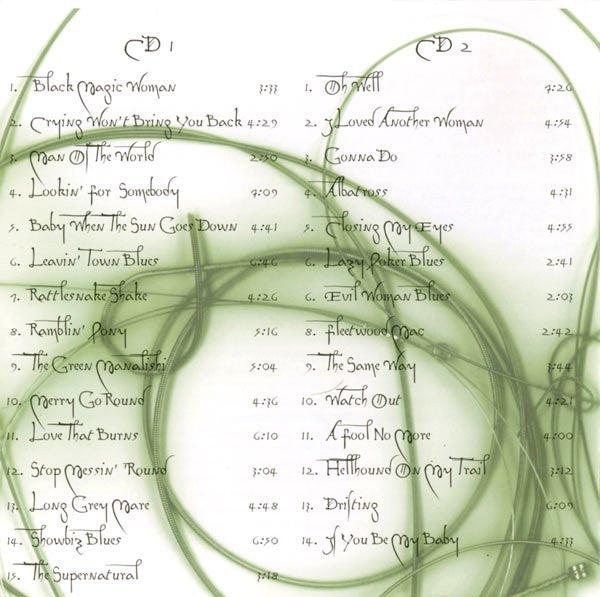 CD 1
1. Black Magic Woman 3:33
2. Crying Won't Bring You Back 4:29
3. Man Of The World 2:50
4. Lookin' for Somebody 7:09
5. Baby When The Sun Goes Down 4:41
6. Leavin' Town Blues 6:46
7. Rattlesnake Shake 4:26
8. Ramblin' Pony 5:16
9. The Green Manalishi 5:04
10. Merry Go Round 4:36
11. Love That Burns 6:10
12. Stop Messin' Round 3:04
13. Long Grey Mare 4:48
14. Showbiz Blues 6:50
15. The Supernatural 3:18
CD 2
1. Oh Well 7:26
2. I Loved Another Woman 4:54
3. Gonna Do 3:58
4. Albatross 4:31
5. Closing My Eyes 4:55
6. Lazy Poker Blues 2:41
6. Evil Woman Blues 2:03
8. Fleetwood Mac 2:42
9. The Same Way 3:44
10. Watch Out 4:21
11. A Fool No More 4:00
12. Hellhound On My Trail 3:12
13. Drifting 6:09
14. If You Be My Baby 4:33